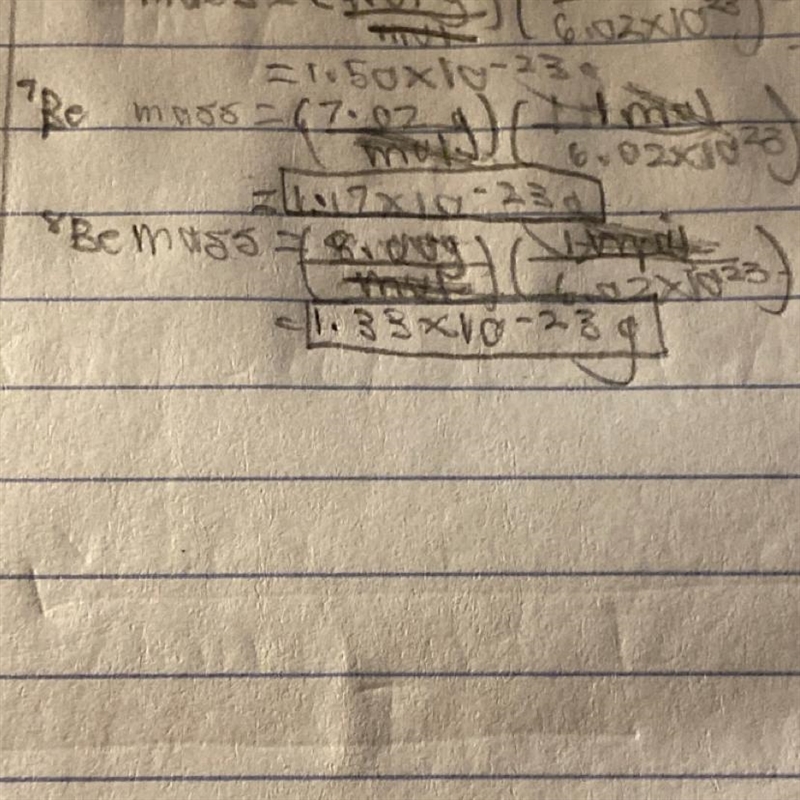 6.02x10²³)
=1.50x10⁻²³g
⁷Be mass = (7.02 g/mol)(1 mol/6.02x10²³)
= 1.17x10⁻²³g
⁸Be mass = (8.00g/mol)(1 mol/6.02x10²³)
= 1.33x10⁻²³ g